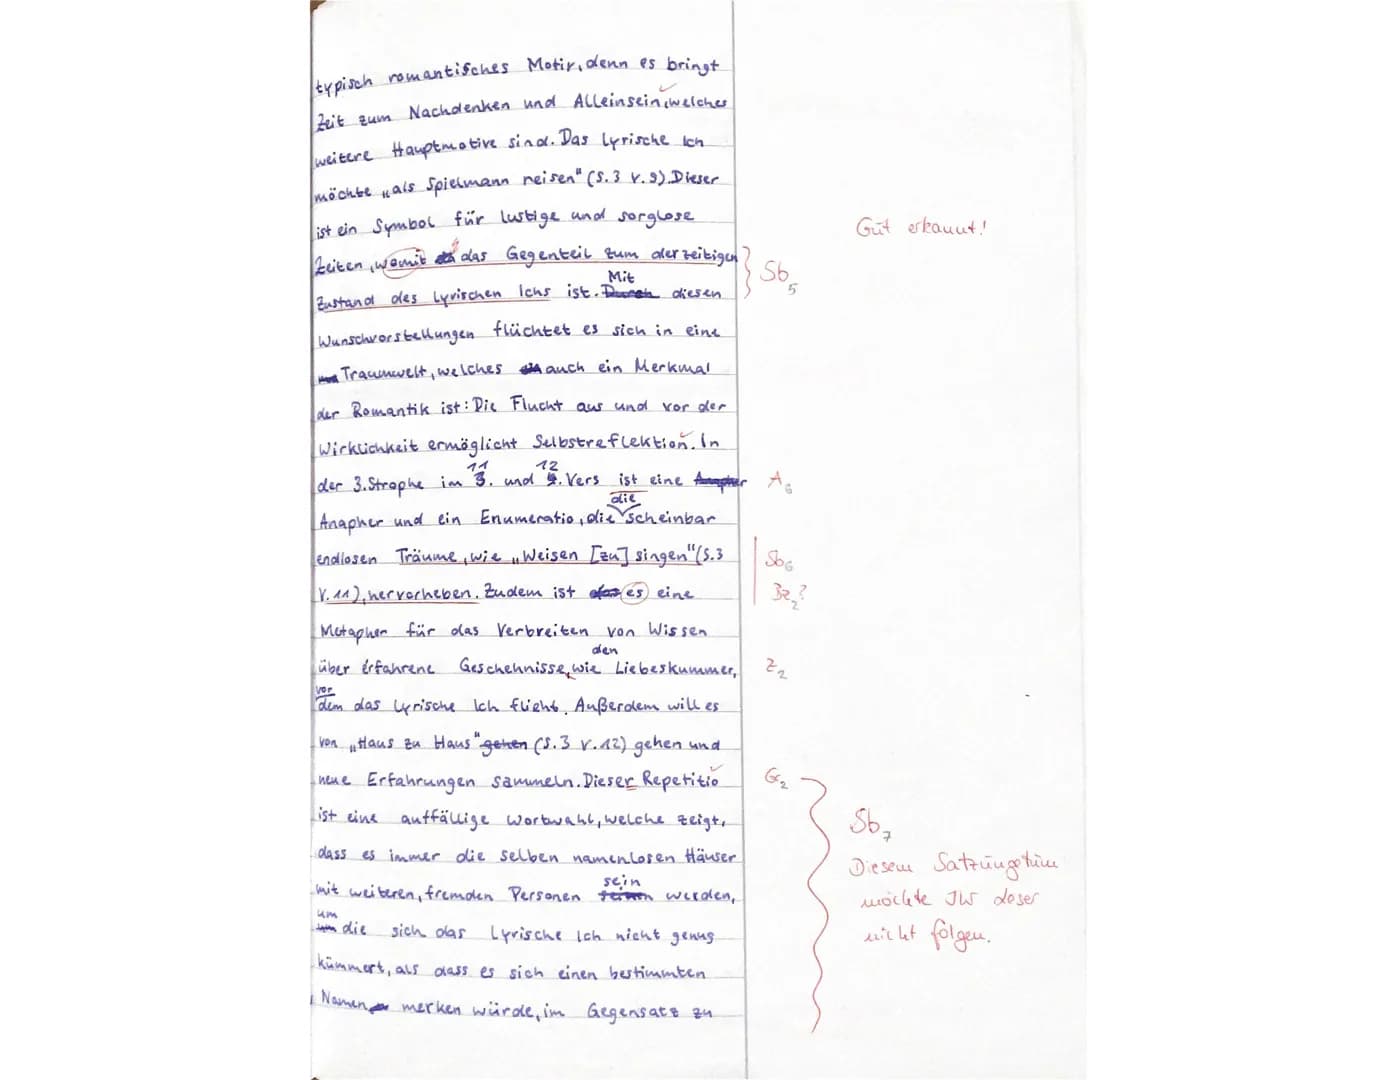 typisch romantisches Motiv, denn es bringt
Zeit zum Nachdenken und Alleinsein, welches
weitere Hauptmotive sind. Das lyrische Ich
möchte „als Spielmann reisen" (S.3 V.9). Dieser
ist ein Symbol für lustige und sorglose
Gut erkannt!
Zeiten, womit das Gegenteil zum derzeitigen
Sb5
Mit
Zustand des lyrischen Ichs ist. Durch diesen
Wunschvorstellungen flüchtet es sich in eine
Traumwelt, welches auch ein Merkmal
der Romantik ist: Die Flucht aus und vor der
Wirklichkeit ermöglicht Selbstreflektion. In
11 12
der 3. Strophe im 3. und 4. Vers ist eine Anapher
A6
die
Anapher und ein Enumeratio, die scheinbar
endlosen Träume, wie „Weisen [zu] singen" (S.3
Sb6
V.11), hervorheben. Zudem ist das es eine
Bz2?
Metapher für das Verbreiten von Wissen
den
über erfahrene Geschehnisse, wie Liebeskummer,
Z2
vor
dem das lyrische Ich flieht. Außerdem will es
von „Haus zu Haus" gehen (S.3 V.12) gehen und
neue Erfahrungen sammeln. Dieser Repetitio
Gr2
ist eine auffällige Wortwahl, welche zeigt,
Sb7
dass es immer die selben namenlosen Häuser
Diesem Satzungetüm
sein
mit weiteren, fremden Personen werden,
möchte JW dieser
um
die sich das lyrische Ich nicht genug
nicht folgen.
kümmert, als dass es sich einen bestimmten
Namen merken würde, im Gegensatz zu